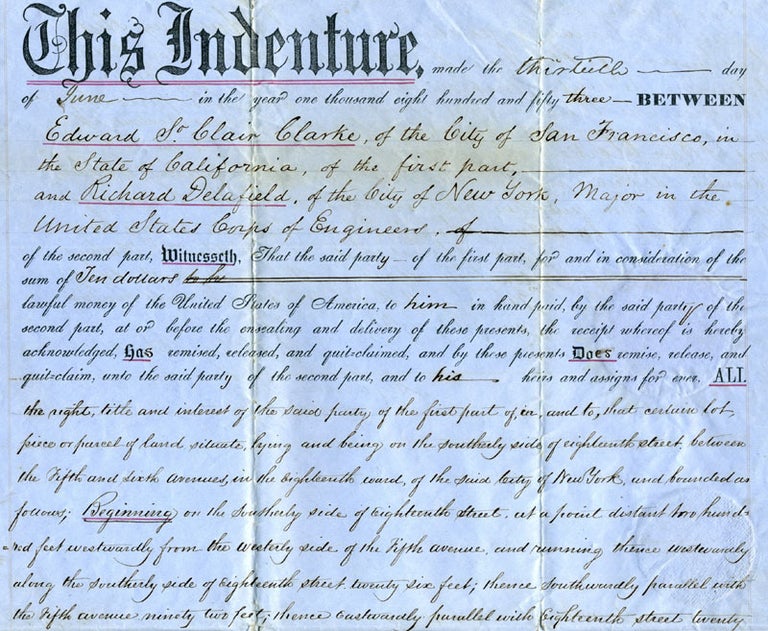 This Indenture, made the thirtieth day
of June in the year one thousand eight hundred and fifty three — BETWEEN
Edward St. Clair Clarke, of the City of San Francisco, in
the State of California, of the first part,
and Richard Delafield, of the City of New York, Major in the
United States Corps of Engineers, of
of the second part, Witnesseth, That the said party — of the first part, for and in consideration of the
sum of Ten dollars
lawful money of the United States of America, to him in hand paid, by the said party of the
second part, at or before the ensealing and delivery of these presents, the receipt whereof is hereby
acknowledged, Has remised, released, and quit-claimed, and by these presents Does remise, release, and
quit-claim, unto the said party of the second part, and to his heirs and assigns for ever, ALL
the right, title and interest of the said party of the first part of, in, and to, that certain lot,
piece or parcel of land situate, lying and being on the southerly side of eighteenth street, between
the Fifth and sixth avenues, in the Eighteenth ward, of the said City of New York, and bounded as
follows; Beginning on the Southerly side of Eighteenth Street, at a point distant two hund-
-red feet westwardly from the westerly side of the Fifth avenue, and running thence westwardly
along the southerly side of Eighteenth street twenty six feet; thence southwardly parallel with
the Fifth avenue ninety two feet; thence eastwardly parallel with Eighteenth street twenty